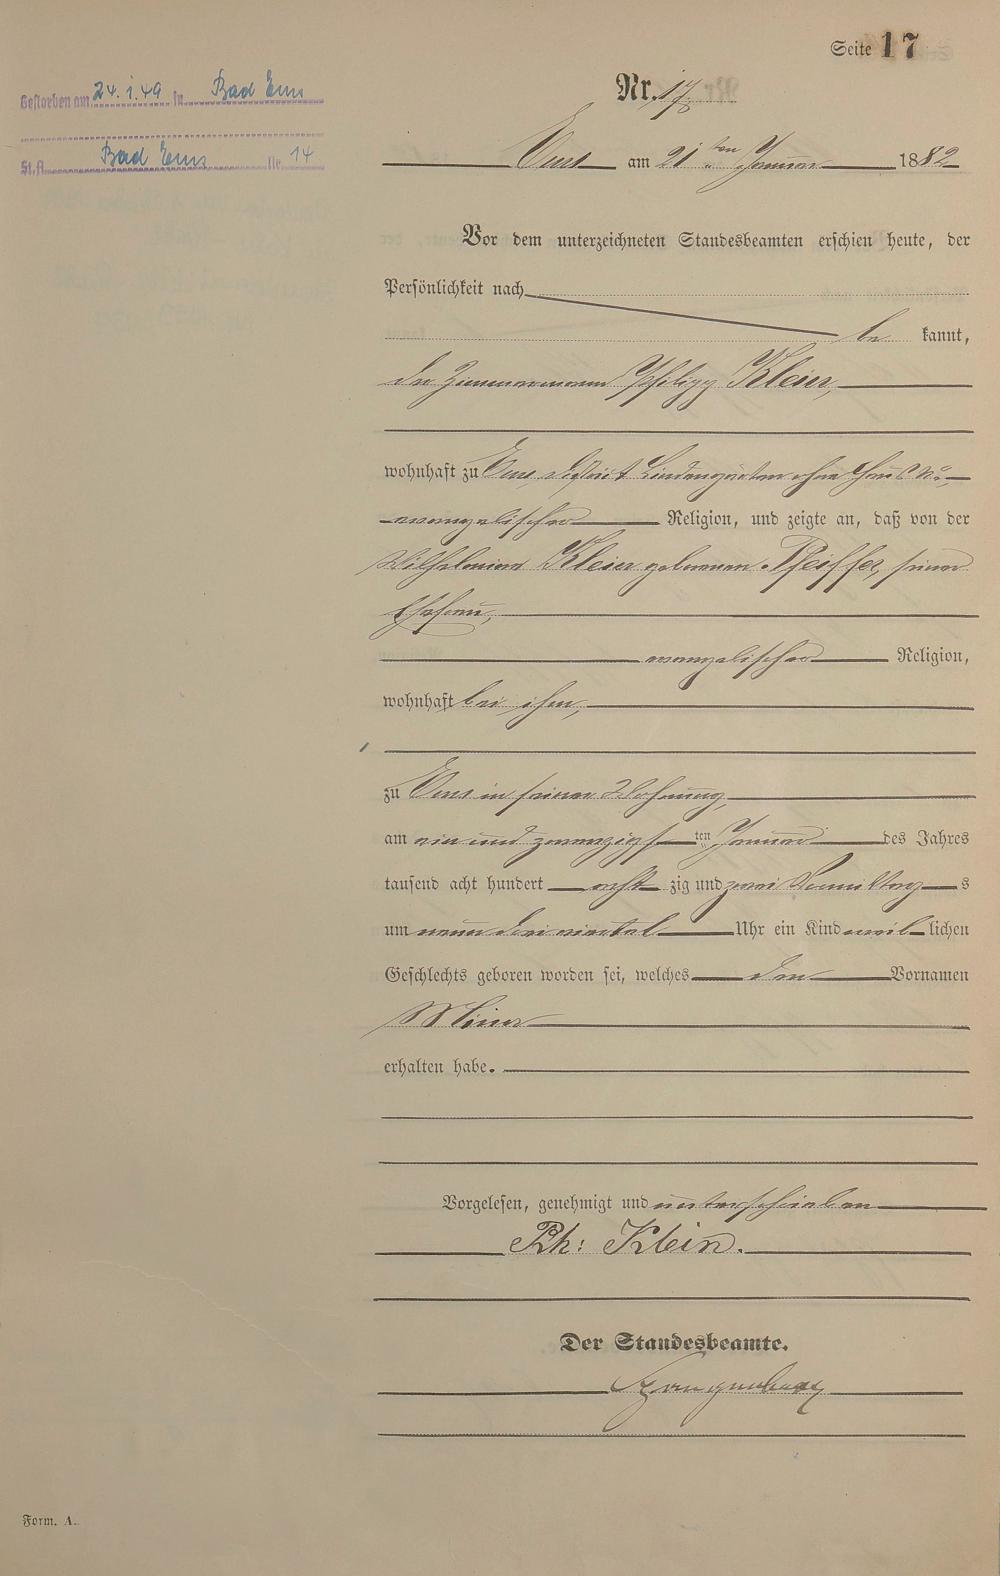 Seite 17
Gestorben am 24.1.49 in Bad Ems
St.A. Bad Ems Nr. 14
Nr. 17.
Ems am 21ten Januar 1882
Vor dem unterzeichneten Standesbeamten erschien heute, der
Persönlichkeit nach
be kannt,
der Zimmermann Philipp Klein,
wohnhaft zu Ems, District Lindengarten ohne Haus No.
evangelischer Religion, und zeigte an, daß von der
Wilhelmine Klein geborenen Pfeiffer, seiner
Ehefrau,
evangelischer Religion,
wohnhaft bei ihm,
zu Ems in seiner Wohnung,
am ein und zwanzigsten Januar des Jahres
tausend acht hundert acht zig und zwei Vormittags
um neun drei viertel Uhr ein Kind weiblichen
Geschlechts geboren worden sei, welches den Vornamen
Mina
erhalten habe.
Vorgelesen, genehmigt und unterschrieben
Ph: Klein.
Der Standesbeamte.
Form. A.